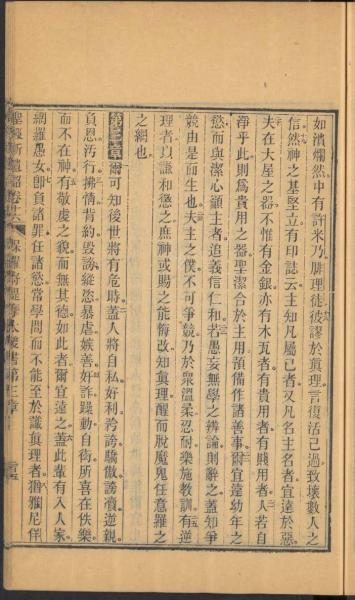 如潰爛然中有許米乃腓理徒彼謬於眞理言復活已過致壞數人之
信然神之基堅立有印誌云主知凡屬己者又凡名主名者宜遠於惡
夫在大屋之器不惟有金銀亦有木瓦者有貴用者有賤用者人若自
淨乎此則爲貴用之器聖潔合於主用預備作諸善事爾宜遠幼年之
慾而與潔心顧主者追義信仁和若愚妄無學之辨論則辭之蓋知爭
競由是而生也夫主之僕不可爭競乃於衆溫柔忍耐樂施教訓有逆
理者以謙和懲之庶神或賜之能悔改知眞理醒而脫魔鬼任意羅之
之網也
第三章爾可知後世將有危時蓋人將自私好利矜誇驕傲謗讟逆親
負恩污行拂情背約毀謗縱恣暴虐嫉善奸詐躁動自衒所喜在佚樂
而不在神有敬虔之貌而無其德如此者爾宜遠之蓋此輩有入人家
網羅愚女卽負諸罪任諸慾常學問而不能至於識眞理者猶雅尼佯
保羅將提摩太後書第三章